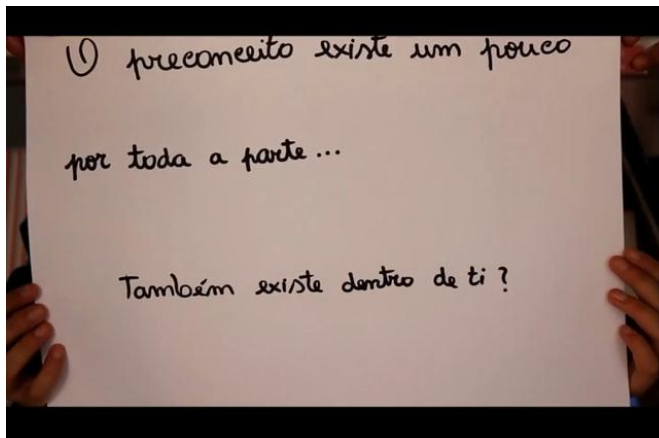 O preconceito existe um pouco
por toda a parte...
Também existe dentro de ti?